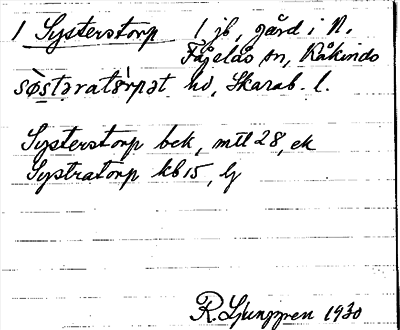 1 Systerstorp 1 jb, gård i N.
Fågelås sn, Kåkinds
sòstəratsrpət hd, Skarab. l.
Systerstorp bek, mtl 28, ek
Systratorp kb 15, lj
R. Ljunggren 1930